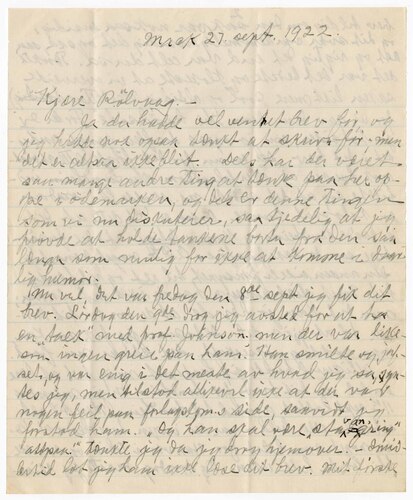 Mrak 27. sept. 1922.
Kjære Rölvaag. —
Ja du hadde vel ventet brev før, og
jeg hadde nok ogsaa tænkt at skrive før men
det er altsaa ikke blit. Dels har der været
saa mange andre ting at tænke paa her op-
pe i ödemarken, og dels er denne tingen
som vi nu diskuterer, saa kjedelig at jeg
prövde at holde tankene borte fra den saa
længe som mulig for ikke at komme i daar-
lig humör.
Nu vel, det var fredag den 8de sept jeg fik dit
brev. Lördag den 9de drog jeg avsted for at ha
en "talk" med prof Johnson, men der var like-
som ingen greie paa ham. Han smilte og
og var enig i det meste av hvad jeg sa, syn-
tes jeg, men tilstod allikevel ikke at der var
nogen feil paa side, saavidt jeg
forstod ham. "Og han skal være
tænkte jeg da jeg drog hjemover. — Imid-
lertid lot jeg ham ikke læse dit brev. Mit første